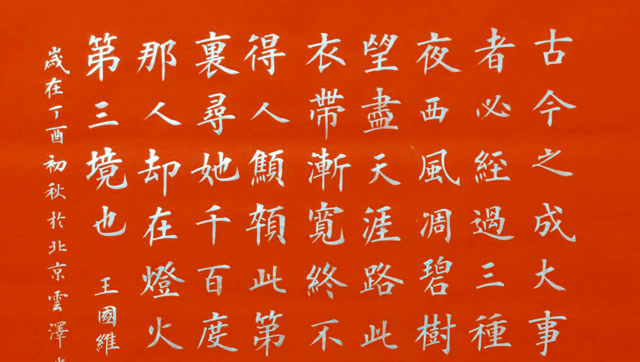 古今之成大事
者必經過三種
夜西風凋碧樹
望盡天涯路此
衣帶漸寬終不
得人顦顇此第
裏尋她千百度
那人却在燈火
第三境也 王國維
歲在丁酉初秋於北京雲澤